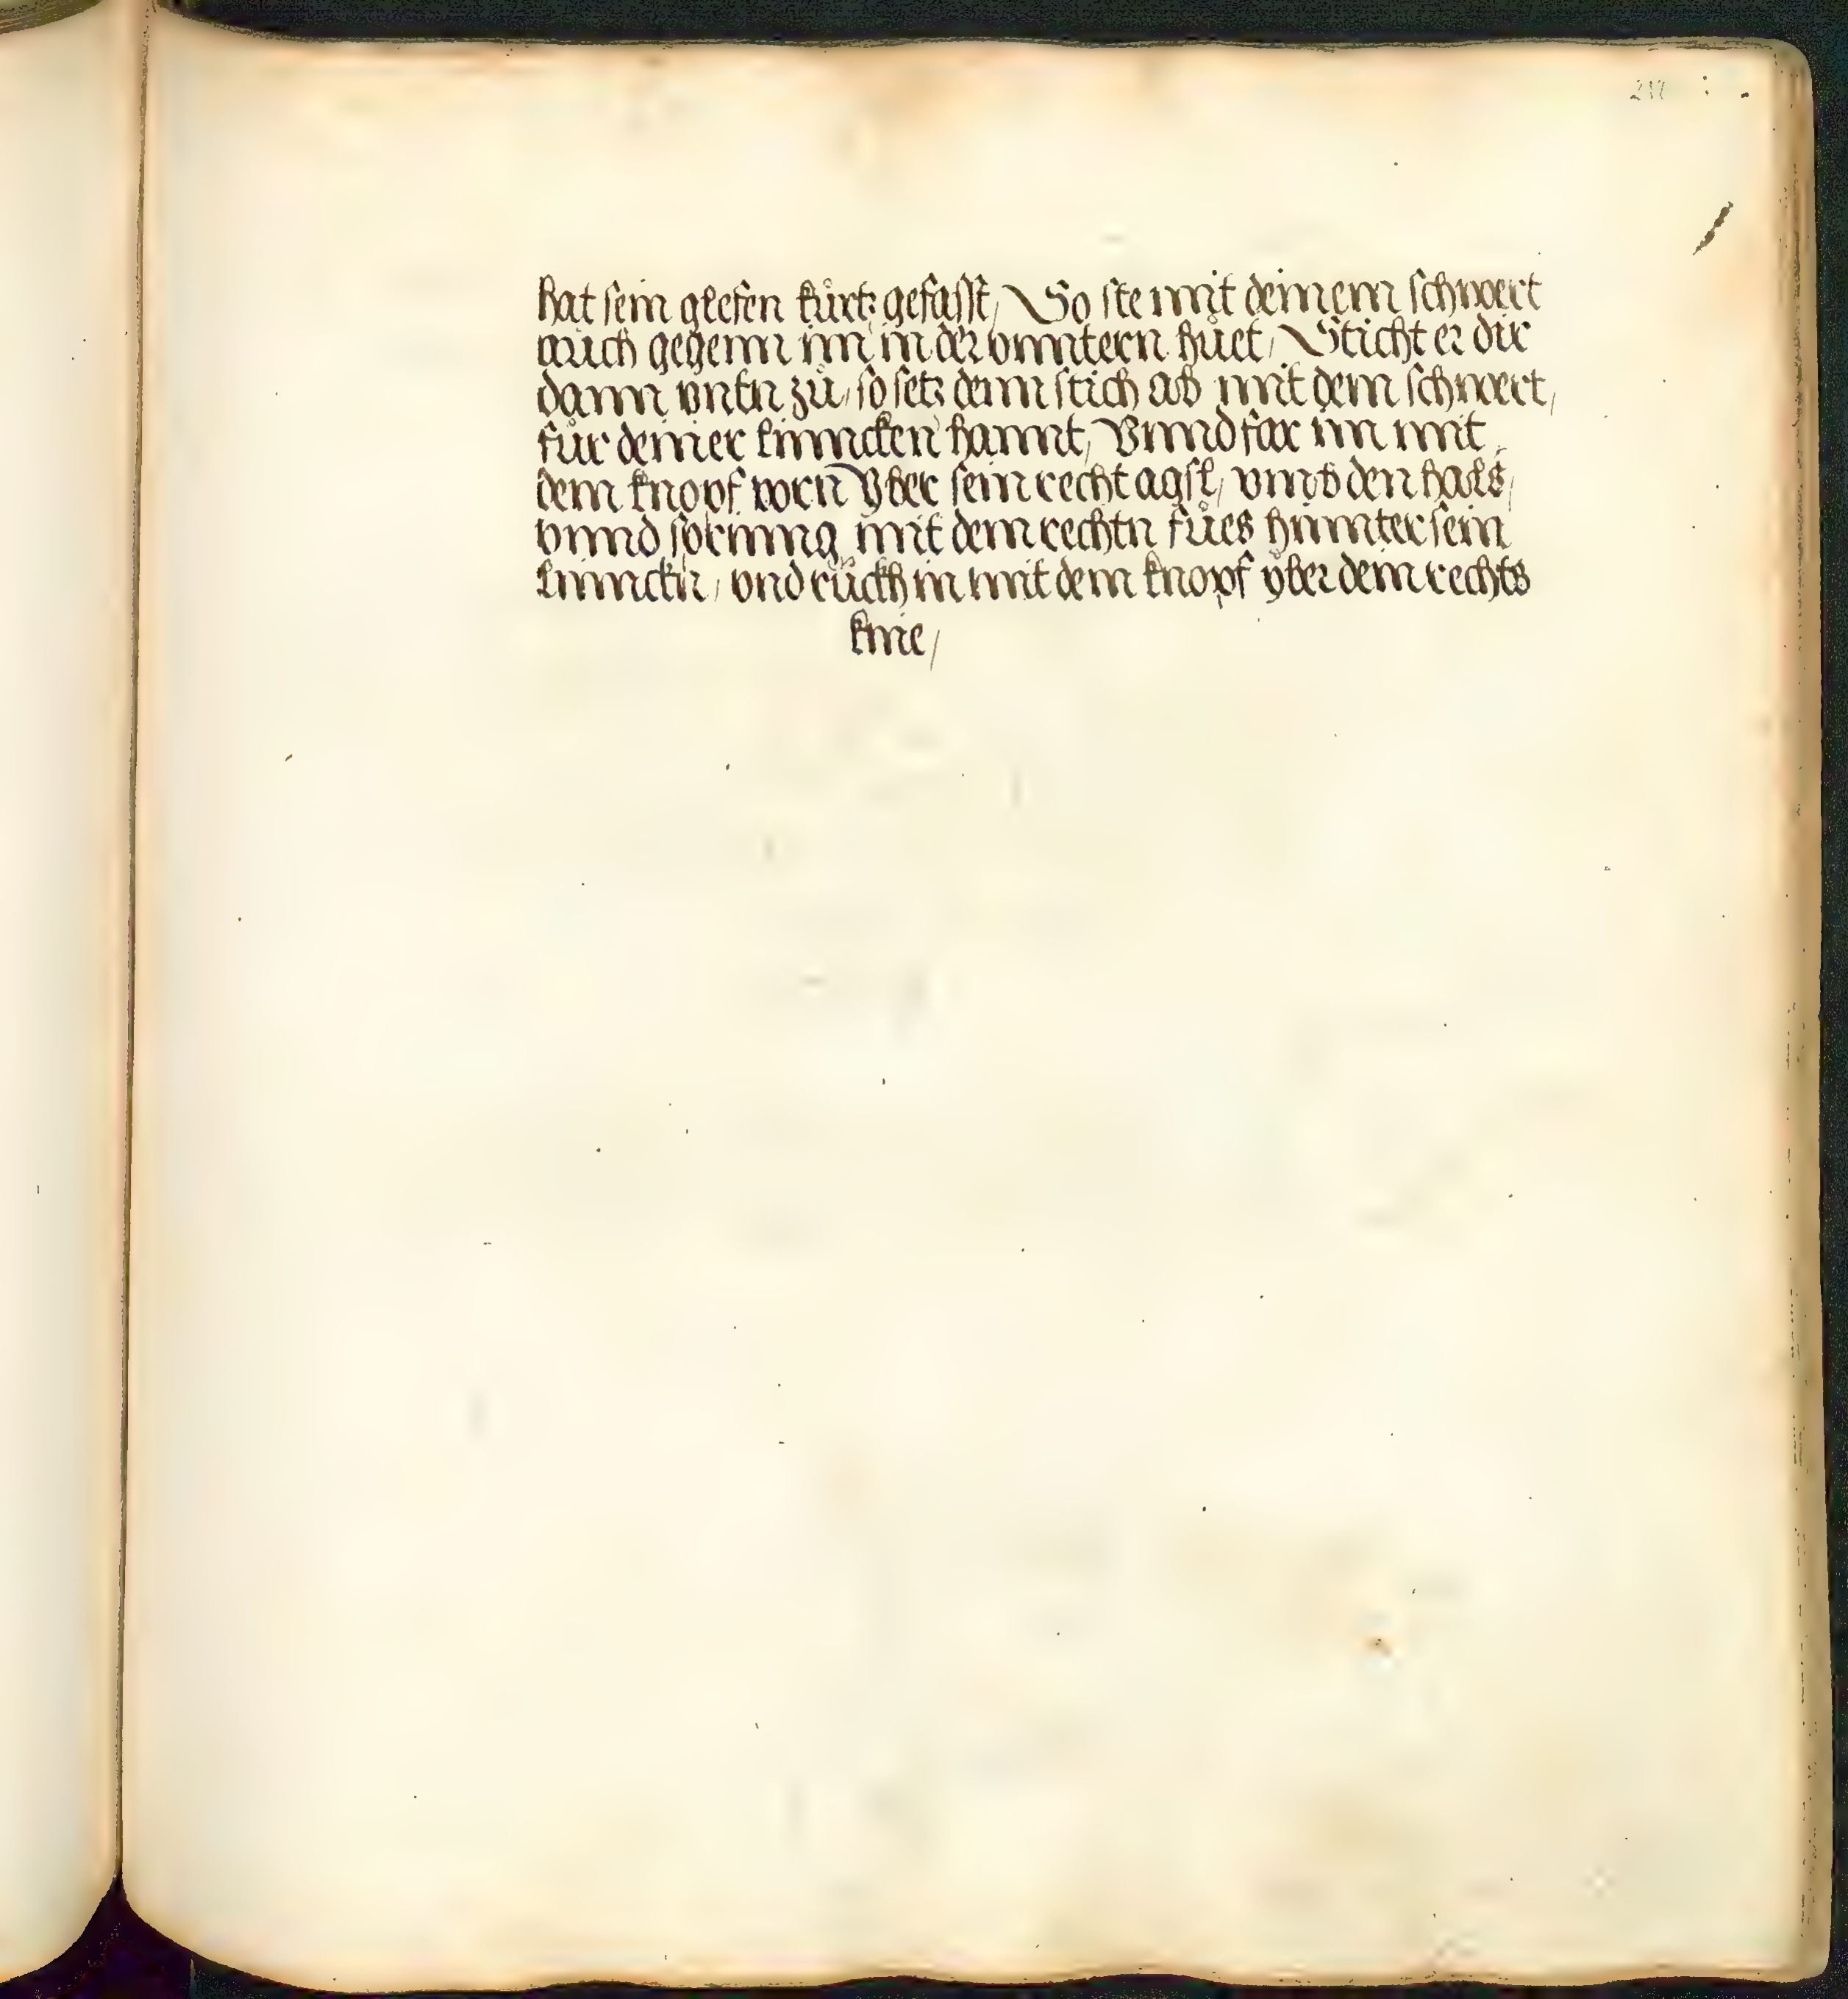 hat sein glefen kürtz gefasst / So ste mit deinem schwert
auch gegenn im in der vnntern hůet / Sticht er dir
dann vntn zů / so setz denn stich ab mit dem schwert /
für deiner linncken hannt / Vnnd far im mit
dem knopf vorn Vber sein recht agsl / vmb den hals /
vnnd spring mit dem rechtn fůes hinnter sein
linnckn / vnd rückh in mit dem knopf yber dein rechts
knie /